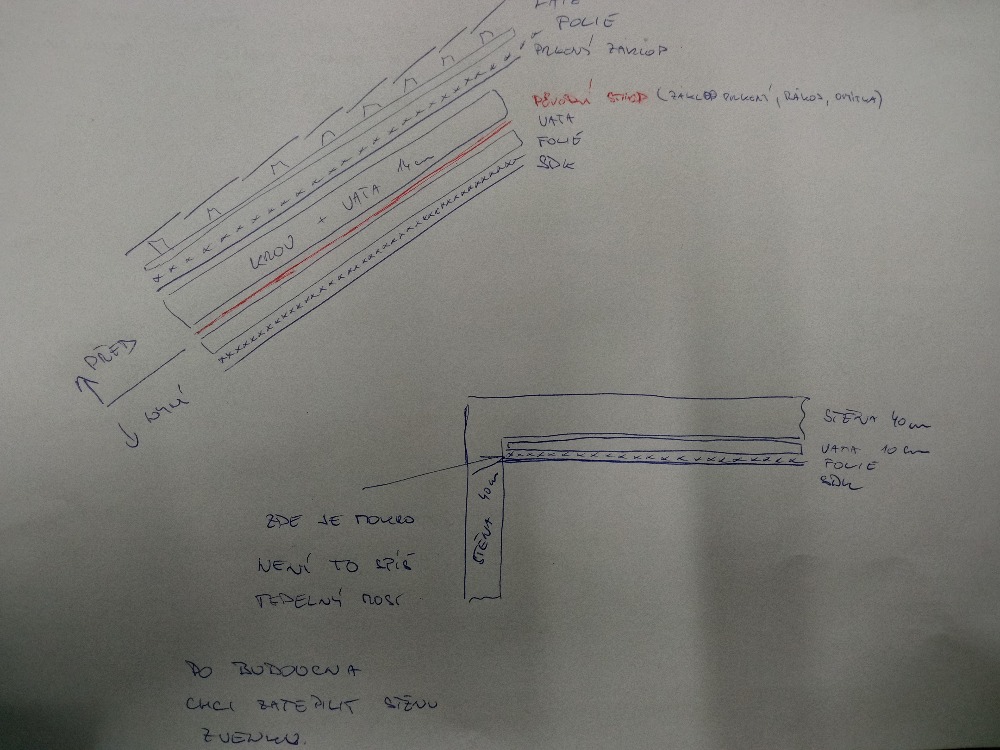 LATĚ
FOLIE
PRKENÝ ZÁKLOP
PŮVODNÍ STROP (ZÁKLOP PRKENÝ, RÁKOS, OMÍTKA)
VATA
FOLIE
SDK
KROV + VATA 14cm
PŘED
NYNÍ
STĚNA 40cm
VATA 10cm
FOLIE
SDK
STĚNA 40cm
ZDE JE MOKRO
NENÍ TO SPÍŠ
TEPELNÝ MOST
DO BUDOUCNA
CHCI ZATEPLIT STĚNU
ZVENKU.